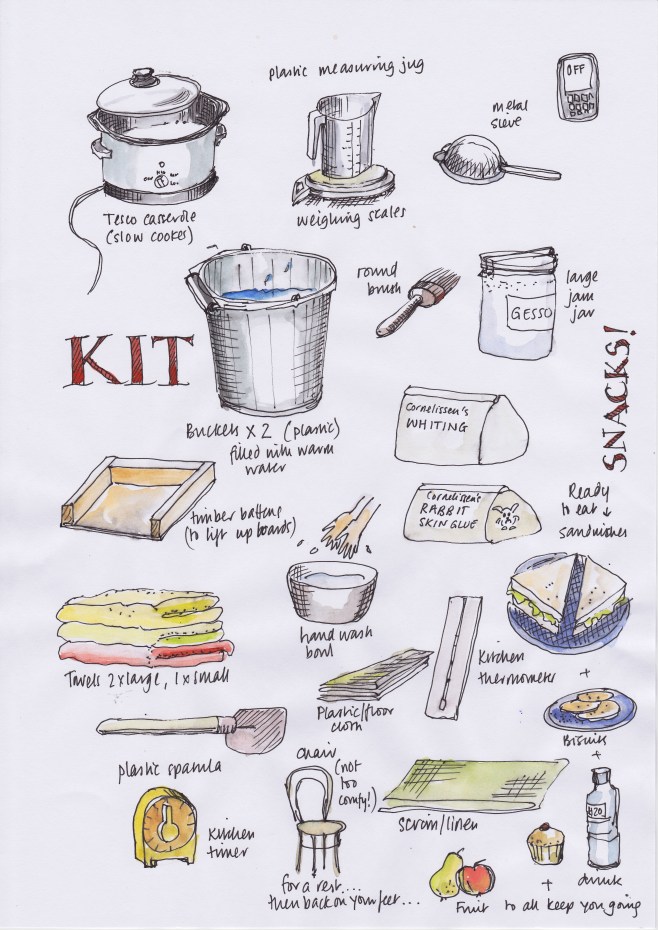 plastic measuring jug
OFF
metal
sieve
Tesco casserole
(slow cooker)
weighing scales
round
brush
GESSO
large
jam
jar
KIT
SNACKS!
Buckets x 2 (plastic)
filled with warm
water
Cornelissen's
WHITING
timber battens
(to lift up boards)
Cornelissen's
RABBIT
SKIN GLUE
Ready
to eat ↓
sandwiches
hand wash
bowl
Towels 2 x large, 1 x small
Kitchen
thermometer
+
Plastic/floor
cloth
Biscuits
+
plastic spatula
chair
(not
too
comfy!)
H2O
Kitchen
timer
scrim/linen
for a rest....
then back on your feet...
Fruit
+
drink
to all keep you going